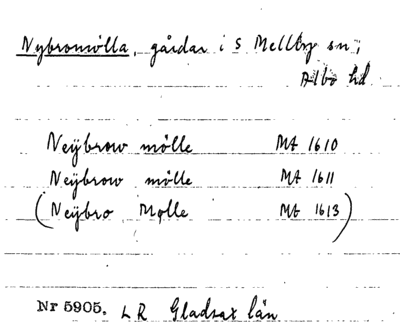 Nybromölla, gårdar i S Mellby sn,
Albo hd
Neÿbrow mölle Mt 1610
Neÿbrow mölle Mt 1611
(Neÿbro Mølle Mt 1613)
Nr 5905. LR Gladsax län